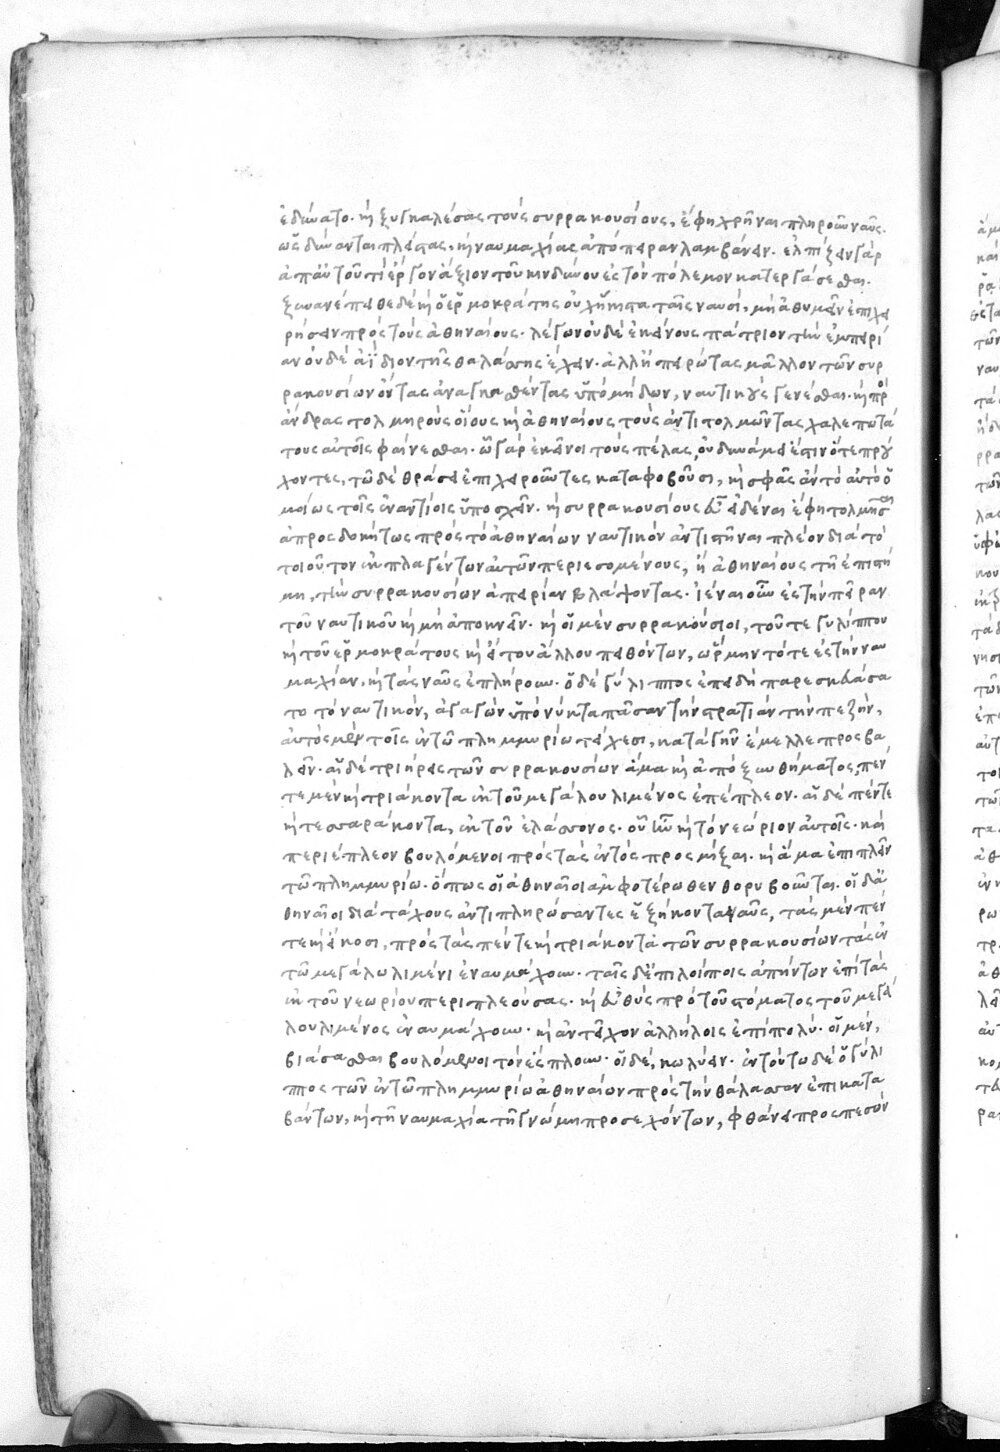 ἐδύνατο. καὶ ξυγκαλέσας τοὺς συρρακουσίους, ἔφη χρῆναι πληροῦν ναῦς
ὡς δύνανται πλείστας, καὶ ναυμαχίας ἀπόπειραν λαμβάνειν. ἐλπίζειν γὰρ
ἀπ' αὐτοῦ τι ἔργον ἄξιον τοῦ κινδύνου ἐς τὸν πόλεμον κατεργάσεσθαι.
ξυνανέπειθε δὲ καὶ ὁ ἑρμοκράτης οὐχ ἥκιστα ταῖς ναυσὶ, μὴ ἀθυμεῖν ἐπιχει
ρήσειν πρὸς τοὺς ἀθηναίους. λέγων οὐδὲ ἐκείνους πάτριον τὴν ἐμπειρί
αν οὐδὲ ἀΐδιον τῆς θαλάσσης ἔχειν. ἀλλ' ἠπειρώτας μᾶλλον τῶν συρ
ρακουσίων ὄντας ἀναγκασθέντας ὑπὸ μήδων, ναυτικοὺς γενέσθαι. καὶ πρὸς
ἄνδρας τολμηροὺς οἵους καὶ ἀθηναίους τοὺς ἀντιτολμῶντας χαλεπωτά
τους αὐτοῖς φαίνεσθαι. ᾧ γὰρ ἐκεῖνοι τοὺς πέλας, οὐ δυνάμει ἔστιν ὅτε πρού
χοντες, τῷ δὲ θράσει ἐπιχειροῦντες καταφοβοῦσι, καὶ σφᾶς ἂν τὸ αὐτὸ ὁ
μοίως τοῖς ἐναντίοις ὑποσχεῖν. καὶ συρρακουσίους εὖ εἰδέναι ἔφη τολμῆσαι
ἀπροσδοκήτως πρὸς τὸ ἀθηναίων ναυτικὸν ἀντιστῆναι πλέον διὰ τὸ
τοιοῦτον ἐκπλαγέντων αὐτῶν περιεσομένους, ἢ ἀθηναίους τῇ ἐπιστή
μῃ, τὴν συρρακουσίων ἀπειρίαν βλάψοντας. ἰέναι οὖν ἐς τὴν πεῖραν
τοῦ ναυτικοῦ καὶ μὴ ἀποκνεῖν. καὶ οἱ μὲν συρρακούσιοι, τοῦ τε γυλίππου
καὶ τοῦ ἑρμοκράτους καὶ εἴ του ἄλλου πειθόντων, ὥρμηντό τε ἐς τὴν ναυ
μαχίαν, καὶ τὰς ναῦς ἐπλήρουν. ὁ δὲ γύλιππος ἐπειδὴ παρεσκεύασα
το τὸ ναυτικὸν, ἀγαγὼν ὑπὸ νύκτα πᾶσαν τὴν στρατιὰν τὴν πεζὴν,
αὐτὸς μὲν τοῖς ἐν τῷ πλημμυρίῳ τείχεσι, κατὰ γῆν ἔμελλε προσβα
λεῖν. αἱ δὲ τριήρεις τῶν συρρακουσίων ἅμα καὶ ἀπὸ ξυνθήματος, πέν
τε μὲν καὶ τριάκοντα ἐκ τοῦ μεγάλου λιμένος ἐπέπλεον. αἱ δὲ πέντε
καὶ τεσσαράκοντα, ἐκ τοῦ ἐλάσσονος. οὗ ἦν καὶ τὸ νεώριον αὐτοῖς. καὶ
περιέπλεον βουλόμενοι πρὸς τὰς ἐντὸς προσμῖξαι. καὶ ἅμα ἐπιπλεῖν
τῷ πλημμυρίῳ. ὅπως οἱ ἀθηναῖοι ἀμφοτέρωθεν θορυβοῦνται. οἱ δ' ἀ
θηναῖοι διὰ τάχους ἀντιπληρώσαντες ἑξήκοντα ναῦς, ταῖς μὲν πέν
τε καὶ εἴκοσι, πρὸς τὰς πέντε καὶ τριάκοντα τῶν συρρακουσίων τὰς ἐν
τῷ μεγάλῳ λιμένι ἐναυμάχουν. ταῖς δ' ἐπιλοίποις ἀπήντων ἐπὶ τὰς
ἐκ τοῦ νεωρίου περιπλεούσας. καὶ εὐθὺς πρὸ τοῦ στόματος τοῦ μεγά
λου λιμένος ἐναυμάχουν. καὶ ἀντεῖχον ἀλλήλοις ἐπὶ πολύ. οἱ μὲν,
βιάσασθαι βουλόμενοι τὸν ἔσπλουν. οἱ δὲ, κωλύειν. ἐν τούτῳ δὲ ὁ γύλι
ππος τῶν ἐν τῷ πλημμυρίῳ ἀθηναίων πρὸς τὴν θάλασσαν ἐπικατα
βάντων, καὶ τῇ ναυμαχίᾳ τῇ γνώμῃ προσεχόντων, φθάνει προσπεσὼν